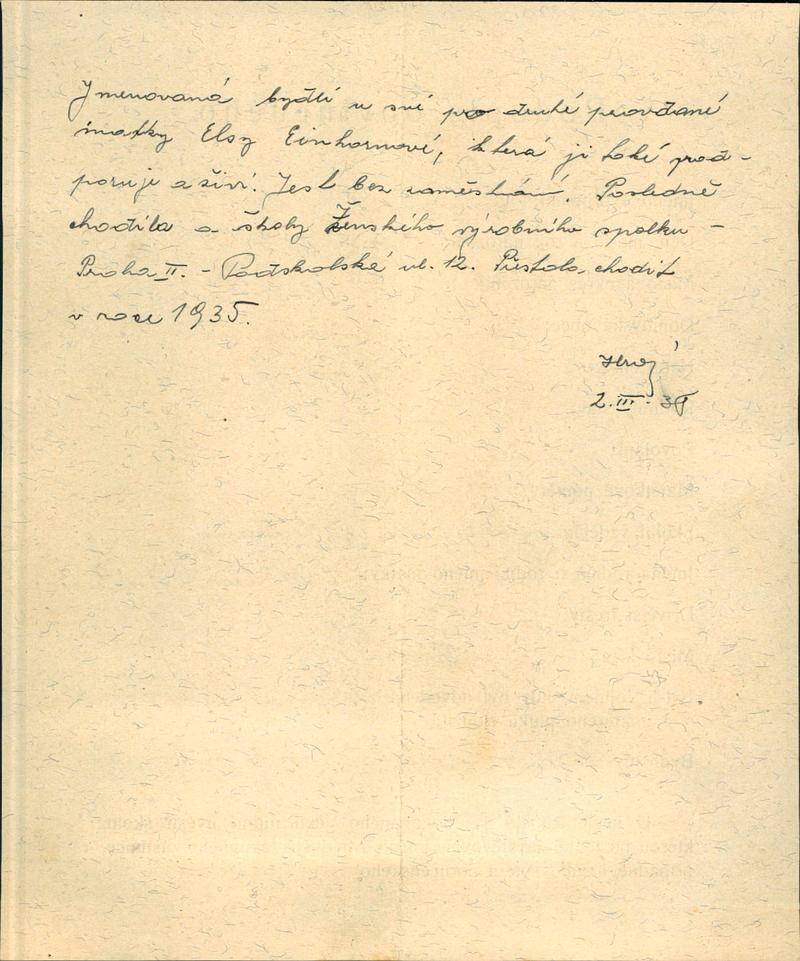 Jmenovaná bydlí u své po druhé provdané
matky Elsy Einhornové, která ji také pod-
poruje a živí. Jest bez zaměstnání. Posledně
chodila do školy Ženského výrobního spolku -
Praha II. - Podskalská ul. 12. Přestala chodit
v roce 1935.
2.III.